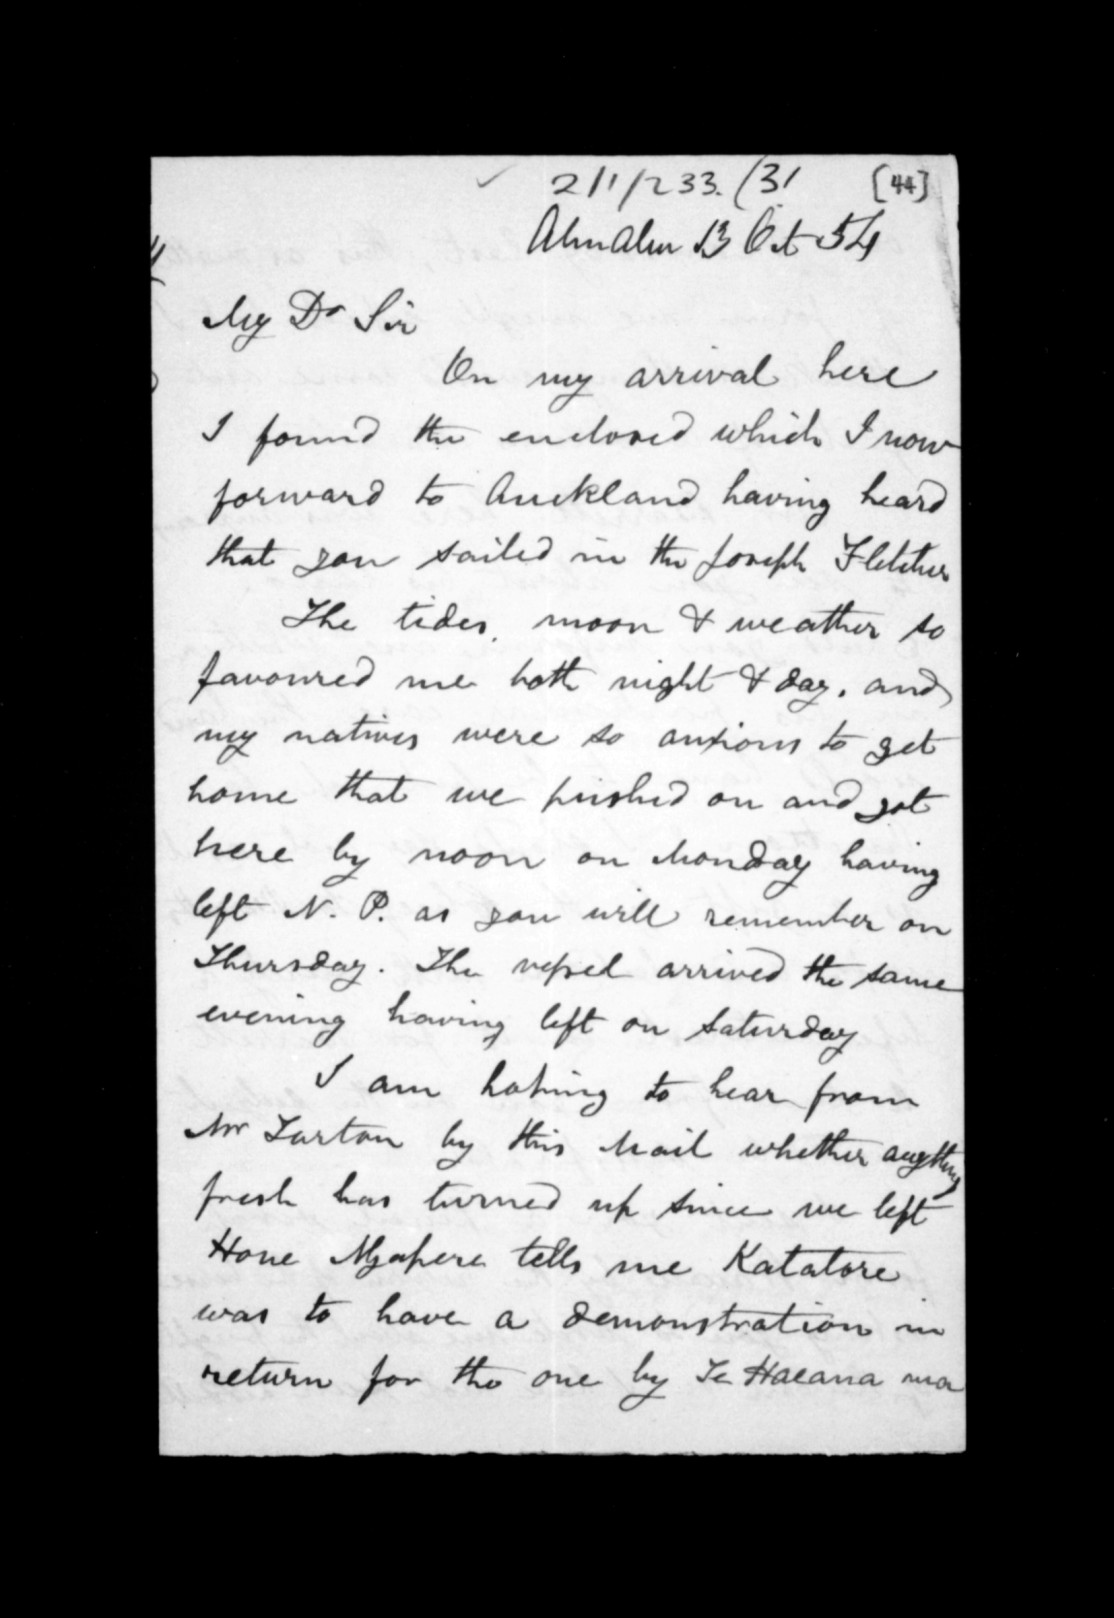 2/1/233. (31 [44]
Ahuahu 13 Oct 54
My Dr Sir
On my arrival here
I found the enclosed which I now
forward to Auckland having heard
that you sailed in the Joseph Fletcher
The tides, moon & weather so
favoured me both night & day, and
my natives were so anxious to get
home that we pushed on and got
here by noon on Monday having
left N. P. as you will remember on
Thursday. The vessel arrived the same
evening having left on Saturday
I am hoping to hear from
Mr Turton by this Mail whether anything
fresh has turned up since we left
Hone Ngapera tells me Katatore
was to have a demonstration in
return for the one by Te Haeana ma